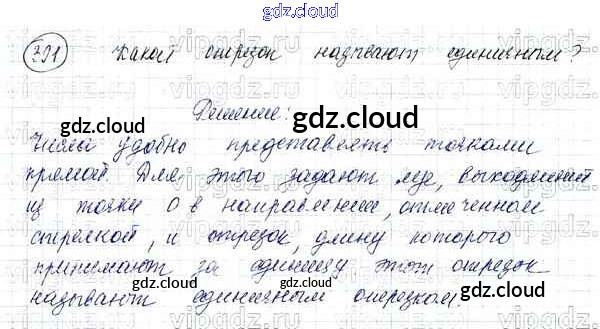 gdz.cloud
301 Какой отрезок называют единичным?
gdz.cloud
Решение:
gdz.cloud
Числа удобно представлять точками
прямой. Для этого задают луч, выходящий
из точки 0 в направлении, отмеченном
стрелкой, и отрезок, длину которого
принимают за единицу этот отрезок
называют единичным отрезком.
gdz.cloud
gdz.cloud